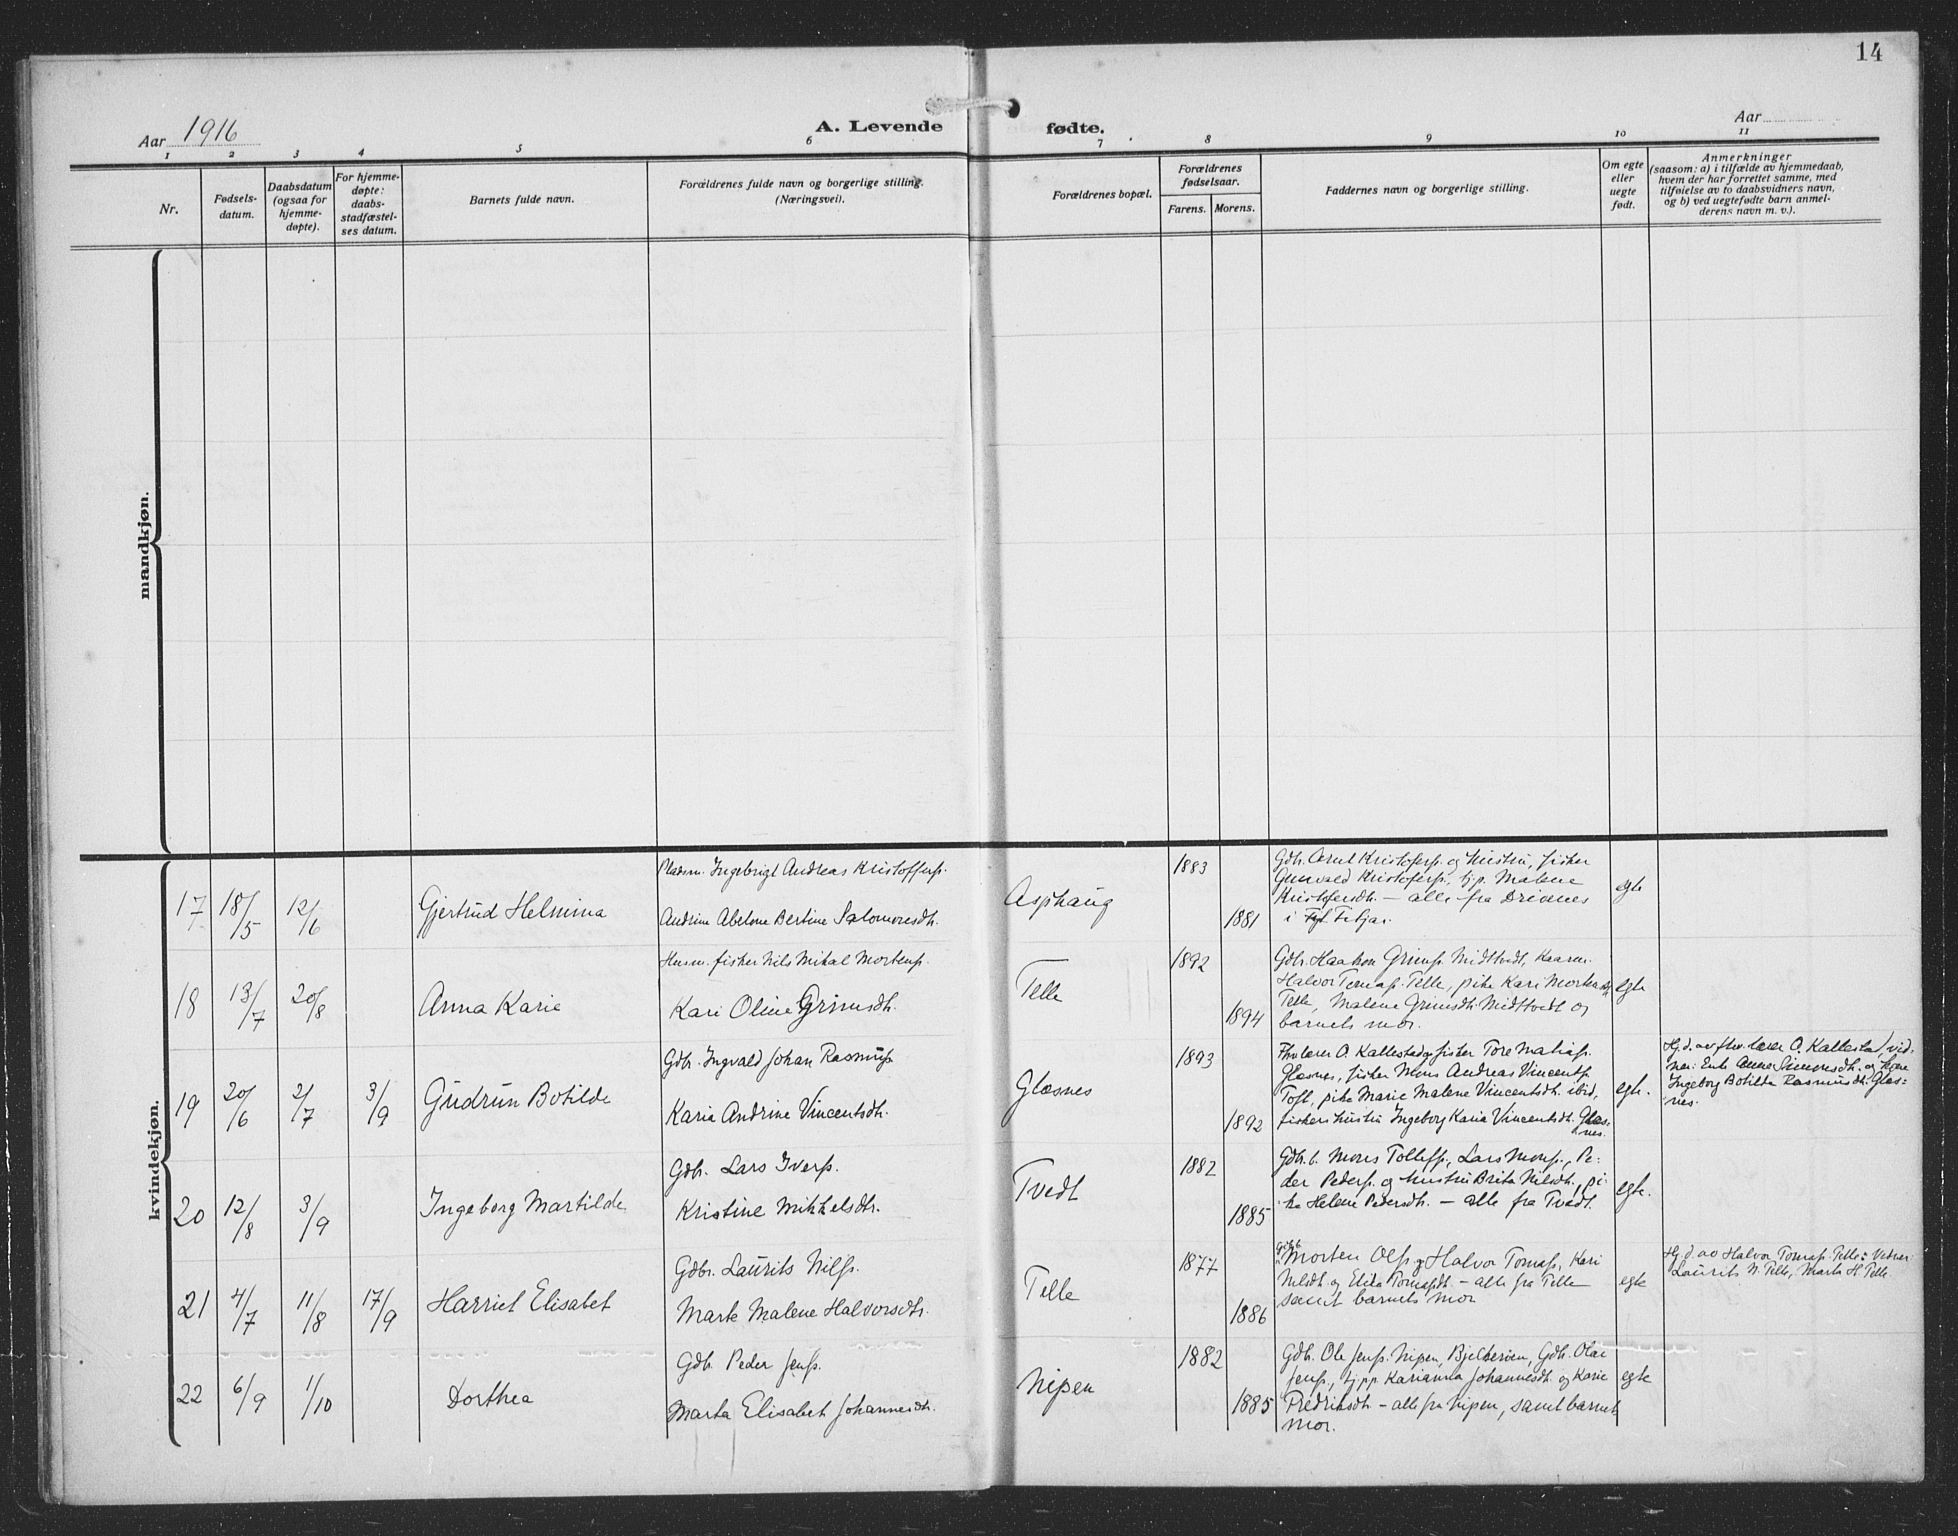 14
Aar 1916
A. Levende fødte.
Aar
1 2 3 4 5 6 7 8 9 10 11
Nr.
Fødsels-
datum.
Daabsdatum
(ogsaa for
hjemme-
døpte).
For hjemme-
døpte:
daabs-
stadfæstel-
ses datum.
Barnets fulde navn.
Forældrenes fulde navn og borgerlige stilling.
(Næringsvei).
Forældrenes bopæl.
Forældrenes
fødselsaar.
Farens. Morens.
Faddernes navn og borgerlige stilling.
Om egte
eller
uegte
født.
Anmerkninger
(saasom: a) i tilfælde av hjemmedaab,
hvem der har forrettet samme, med
tilføielse av to daabsvidners navn,
og b) ved uegtefødte barn anmel-
derens navn m. v.).
mandkjøn.
kvindekjøn.
17 18/5 12/6
Gjertrud Helmina
Pladsm. Ingebrigt Andreas Kristoffersſ.
Andrine Abelone Bertine Salomonsdtr.
Asphaug
1883
1881
Gdbr. Arnt Kristofersſ. og hustru, fisker
Gunvald Kristofersſ., tj.p. Malene
Kristofersdtr. – alle fra
i Fitjar.
egte
18 13/7 20/8
Anna Karie
Husm. fisker Nils Mikal Mortensſ.
Kari Oline Grimsdtr.
Telle
1892
1894
Gdbr. Haakon Grimsſ. Midttvedt, Kaarm.
Halvor Tomasſ. Telle, pike Kari Mortensdtr.
Telle, Malene Grimsdtr. Midttvedt og
barnets mor.
egte
19 20/6 2/7 3/9
Gudrun Botilde
Gdbr. Ingvald Johan Rasmusſ.
Karia Andrine Vincentsdtr.
Glæsnes
1893
1892
Fhv. lærer O. Kallestad, fisker Tore Matiasſ.
Glæsnes, fisker Mons Andreas Vincentsſ.
Toft, pike Marie Malene Vincentsdtr. ibid,
fiskers hustru Ingeborg Karia Vincentsdtr. Glæs-
nes.
egte.
Hj. d. av fhv. lærer O. Kallestad, vid-
ner: Enke Anna Simonsdtr. og kone
Ingeborg Botilda Rasmusdtr. Glæs-
nes.
20 12/8 3/9
Ingeborg Martilde
Gdbr. Lars Iversſ.
Kristine Mikkelsdtr.
Tvedt
1882
1885
Gdbr. Mons Tollefsſ., Lars Monsſ., Pe-
der Pedersſ. og hustru Brita Nilsdtr., pi-
ke Helene Pedersdtr. – alle fra Tvedt.
egte.
21 4/7 11/8 17/9
Harriet Elisabet
Gdbr. Laurits Nilsſ.
Marte Malene Halvorsdtr.
Telle
1877
1886
Gdbr. Morten Olsſ. og Halvor Tomasſ., Kari
Nilsdtr. og Elida Tomasdtr. – alle fra Telle
samt barnets mor
egte
Hj. d. av Halvor Tomasſ. Telle: Vidner:
Laurits N. Telle, Marta H. Telle
22 6/9 1/10
Dorthea
Gdbr. Peder Jensſ.
Marta Elisabet Johannesdtr.
Nipen
1882
1885
Gdbr. Ole Jensſ. Nipen, Gdbr. Olai
Jensſ., tj.pp. Karianna Johannesdtr. og Karie
Fredriksdtr. – alle fra Nipen, samt barnets
mor.
egte